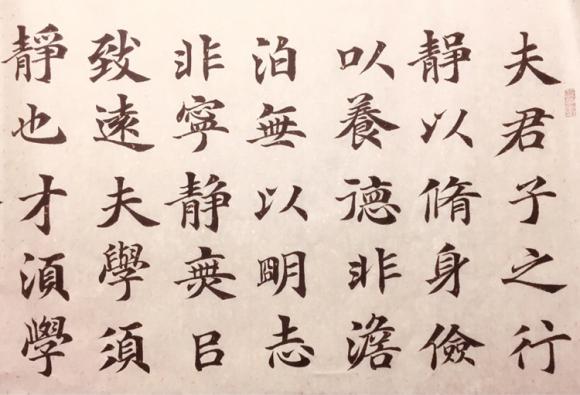 夫君子之行
靜以脩身儉
㕥養德非澹
泊無以朙志
非寧静無㠯
致遠夫學須
靜也才須學